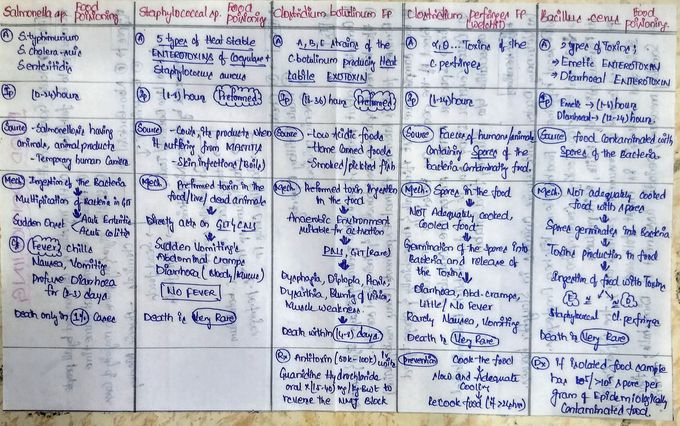 Salmonella sp. Food Poisoning
Ⓐ S. typhimurium
S. cholera-suis
S. enteritidis
IP (12-24) hours
Source - Salmonellosis having
animals, animal products
- Temporary human Carriers
Mech Ingestion of the Bacteria
↓
Multiplication of Bacteria in GIT
↓
Sudden Onset Acute Enteritis
Acute colitis
Fever, chills
Nausea, Vomiting
Profuse Diarrhoea
for (2-3) days
Death only in 1% Cases
Staphylococcal sp. Food Poisoning
Ⓐ 5 types of Heat Stable
ENTEROTOXINS of Coagulase +
Staphylococcus aureus
IP (1-8) hours Preformed
Source - Cows, its products when
it suffering from MASTITIS
- Skin infections (Boils)
Mech. Preformed toxin in the
food
↓
Directly acts on GIT & CNS
↓
Sudden Vomitings
Abdominal cramps
Diarrhoea (Bloody/Mucus)
NO FEVER
Death is Very Rare
Clostridium botulinum FP
Ⓐ A, B, E strains of the
C. botulinum producing Heat
Labile EXOTOXIN
IP (18-36) hours Preformed
Source - Low Acidic foods
- Home canned foods
- Smoked/pickled fish
Mech. Preformed toxin Ingestion
in the food
↓
Anaerobic Environment
suitable for activation
↓
PNS, GIT (rare)
↓
Dysphagia, Diplopia, Ptosis,
Dysarthria, Blurring of Vision,
Muscle weakness.
↓
Death within (4-8) days
Rx Antitoxin (50k-100k) IV units
Guanidine Hydrochloride
oral × (15-40) mg/kg Bwt to
reverse the NMJ Block
Clostridium perfringes FP
(welchii)
Ⓐ α, θ... Toxins of the
C. perfringes
IP (6-24) hours
Source Faeces of humans/animals
containing Spores of the
bacteria contaminating food.
Mech. Spores in the food
↓
NOT Adequately cooked,
cooled food
↓
Germination of the spores into
Bacteria and release of
the Toxins
↓
Diarrhoea, Abd-cramps,
Little/No Fever
Rarely Nausea, Vomiting
Death is Very Rare
Prevention Cook the food
↓
Slow and Adequate
Cooling
↓
Recook food (if >24hrs)
Bacillus cereus Food Poisoning.
Ⓐ 2 types of Toxins;
→ Emetic ENTEROTOXIN
→ Diarrhoeal ENTEROTOXIN
IP Emetic → (1-6) hours
Diarrhoeal → (12-24) hours.
Source food contaminated with
Spores of the Bacteria.
Mech. NOT adequately cooked
food with spores
↓
Spores germinates into Bacteria
↓
Toxins production in food
↓
Ingestion of food with Toxins
Ⓔ Ⓓ
Staphylococcal Cl. perfringes
Death is Very Rare
Dx If isolated food sample
has
gram of Epidemiologically
Contaminated food.